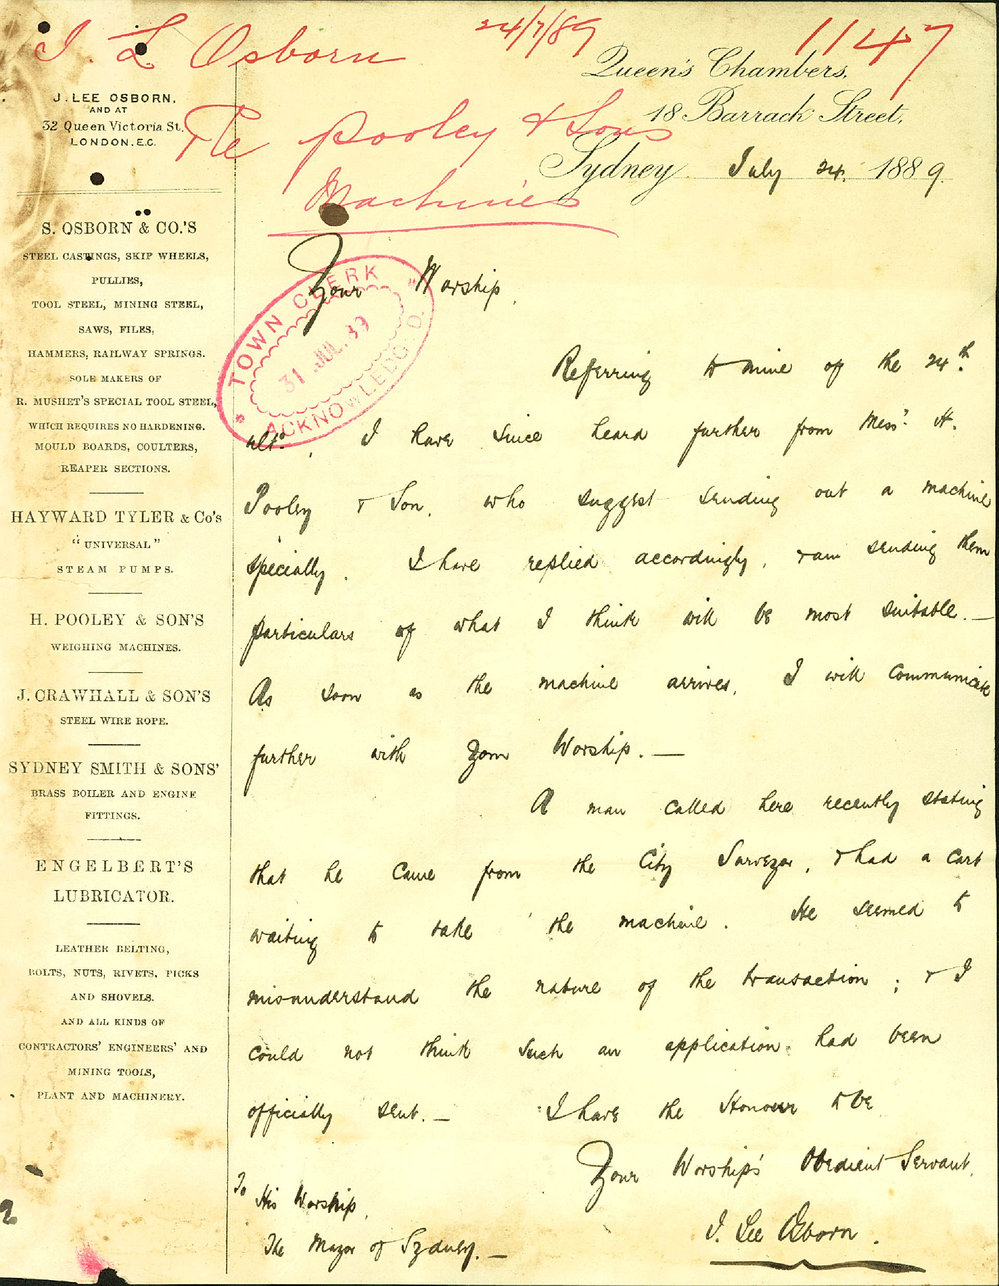 J. L Osborn
24/7/89
1147
Re Pooley & Sons
Machines
J. LEE OSBORN,
AND AT
32 Queen Victoria St.
LONDON. E.C.
Queen's Chambers,
18 Barrack Street,
Sydney July 24. 1889.
S. OSBORN & CO.'S
STEEL CASTINGS, SKIP WHEELS,
PULLIES,
TOOL STEEL, MINING STEEL,
SAWS, FILES,
HAMMERS, RAILWAY SPRINGS.
SOLE MAKERS OF
R. MUSHET'S SPECIAL TOOL STEEL,
WHICH REQUIRES NO HARDENING.
MOULD BOARDS, COULTERS,
REAPER SECTIONS.
HAYWARD TYLER & Co's
"UNIVERSAL"
STEAM PUMPS.
H. POOLEY & SON'S
WEIGHING MACHINES.
J. CRAWHALL & SON'S
STEEL WIRE ROPE.
SYDNEY SMITH & SONS'
BRASS BOILER AND ENGINE
FITTINGS.
ENGELBERT'S
LUBRICATOR.
LEATHER BELTING,
BOLTS, NUTS, RIVETS, PICKS
AND SHOVELS.
AND ALL KINDS OF
CONTRACTORS' ENGINEERS' AND
MINING TOOLS,
PLANT AND MACHINERY.
TOWN CLERK
31 JUL. 89
ACKNOWLEDGED
Your Worship,
Referring to mine of the 24th.
ulto., I have since heard further from Messrs. H.
Pooley & Son, who suggest sending out a machine
specially. I have replied accordingly, & am sending them
particulars of what I think will be most suitable. —
As soon as the machine arrives, I will communicate
further with Your Worship. —
A man called here recently stating
that he came from the City Surveyor, & had a cart
waiting to take the machine. He seemed to
misunderstand the nature of the transaction; & I
could not think such an application had been
officially sent. — I have the Honour to be
Your Worship's Obedient Servant,
J. Lee Osborn.
To
His Worship,
The Mayor of Sydney. —